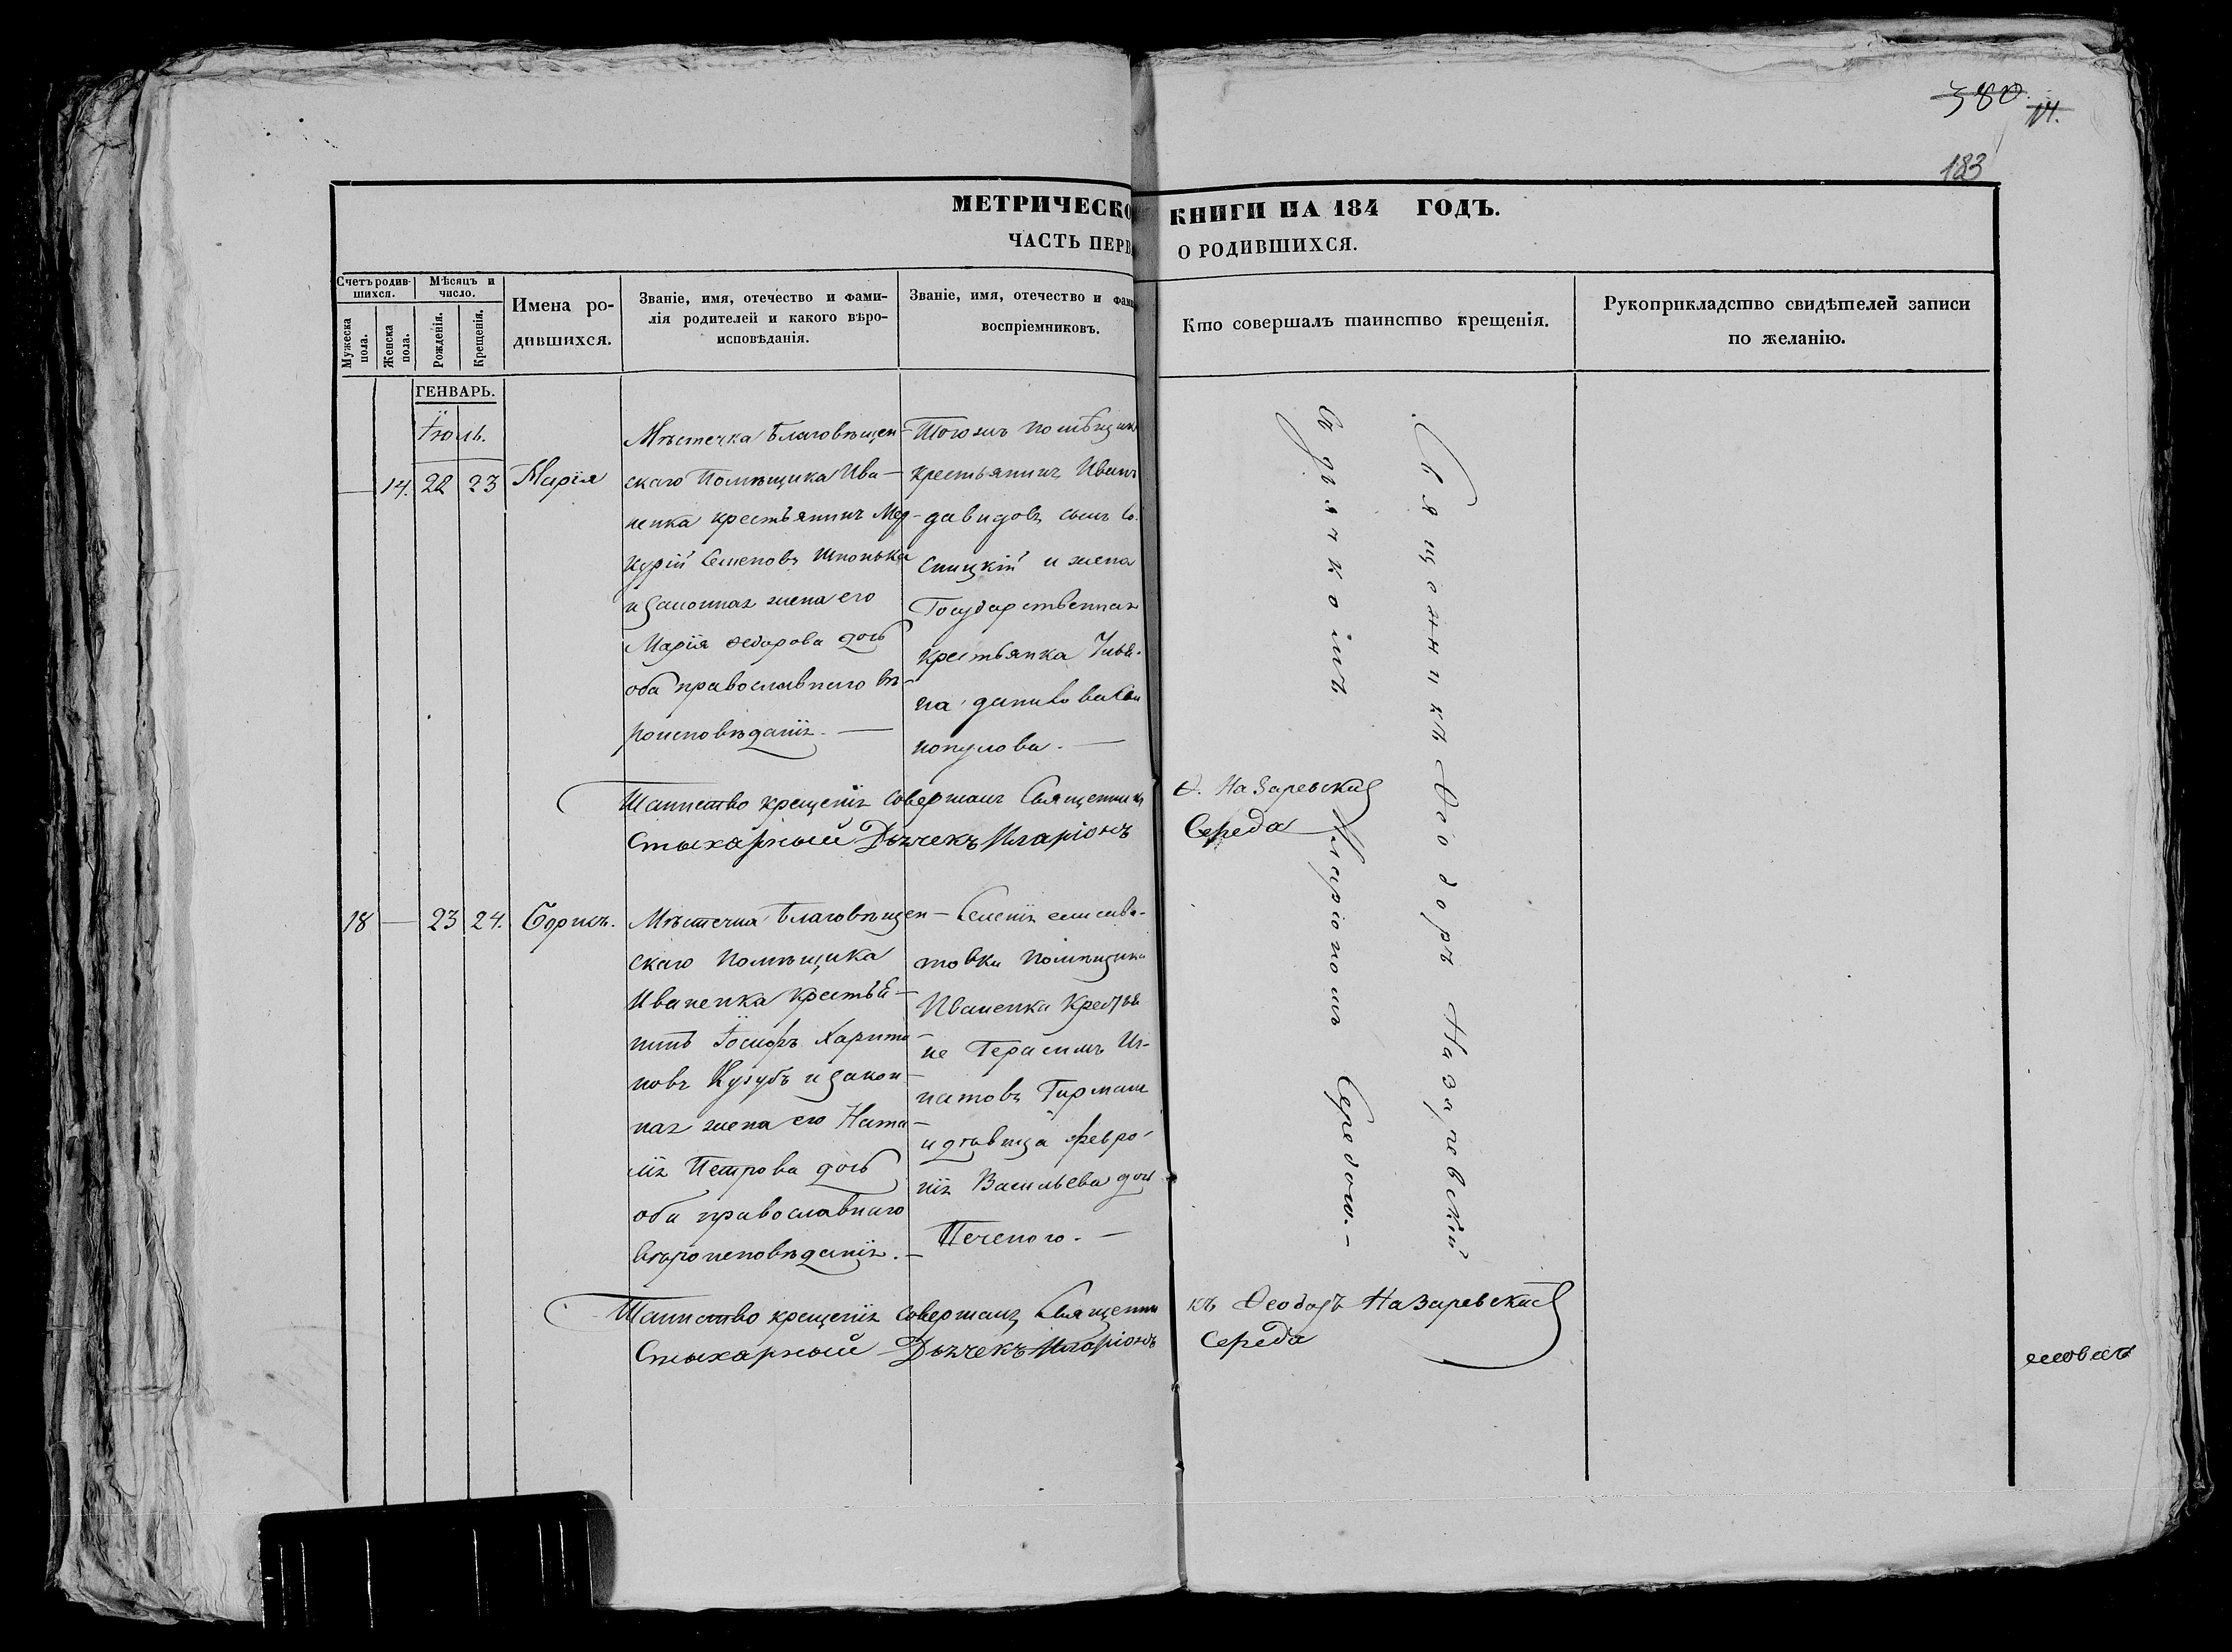 380
14.
183
МЕТРИЧЕСКО КНИГИ НА 184 ГОДЪ.
ЧАСТЬ ПЕРВ О РОДИВШИХСЯ.
Счетъ родив-
шихся.
Мужеска пола.
Женска пола.
Мѣсяцъ и
число.
Рожденія.
Крещенія.
Имена ро-
дившихся.
Званіе, имя, отечество и фами-
лія родителей и какого вѣро-
исповѣданія.
Званіе, имя, отечество и фами
воспріемниковъ.
Кто совершалъ таинство крещенія.
Рукоприкладство свидѣтелей записи
по желанію.
ГЕНВАРЬ.
Іюль.
— 14. 22 23 Марія
Мѣстечка Благовѣщен-
скаго Помѣщика Ива-
ненка крестьянинъ Мер-
курій Семеновъ Шпонька
и законная жена его
Марія Федорова дочь
оба православнаго вѣ-
роисповѣданія. —
Тогожъ помѣщик
крестьянинъ Иванъ
Давидовъ сынъ
и жена
Государственная
крестьянка
на
Таинство крещенія совершалъ Священникъ Ѳ. Назаревскій
Стыхарный Дьячекъ Иларіонъ Середа
18 — 23 24. Борисъ.
Мѣстечка Благовѣщен-
скаго Помѣщика
Иваненка крестья-
нинъ Іосифъ Харито-
новъ Кузубъ и закон-
ная жена его Ната-
лія Петрова дочь
оба православнаго
вѣроисповѣданія. —
Селенія елисаве-
товки помѣщика
Иваненка Крестья
не Герасимъ Иг-
натовъ
и дѣвица Февро-
нія Васильева доч
Печеного. —
Таинство крещенія совершалъ Священникъ Ѳеодоръ Назаревскій
Стыхарный Дьячекъ Иларіонъ Середа
Священникъ Ѳеодоръ Назаревскій
Съ дьячкомъ Иларіономъ Середою. —